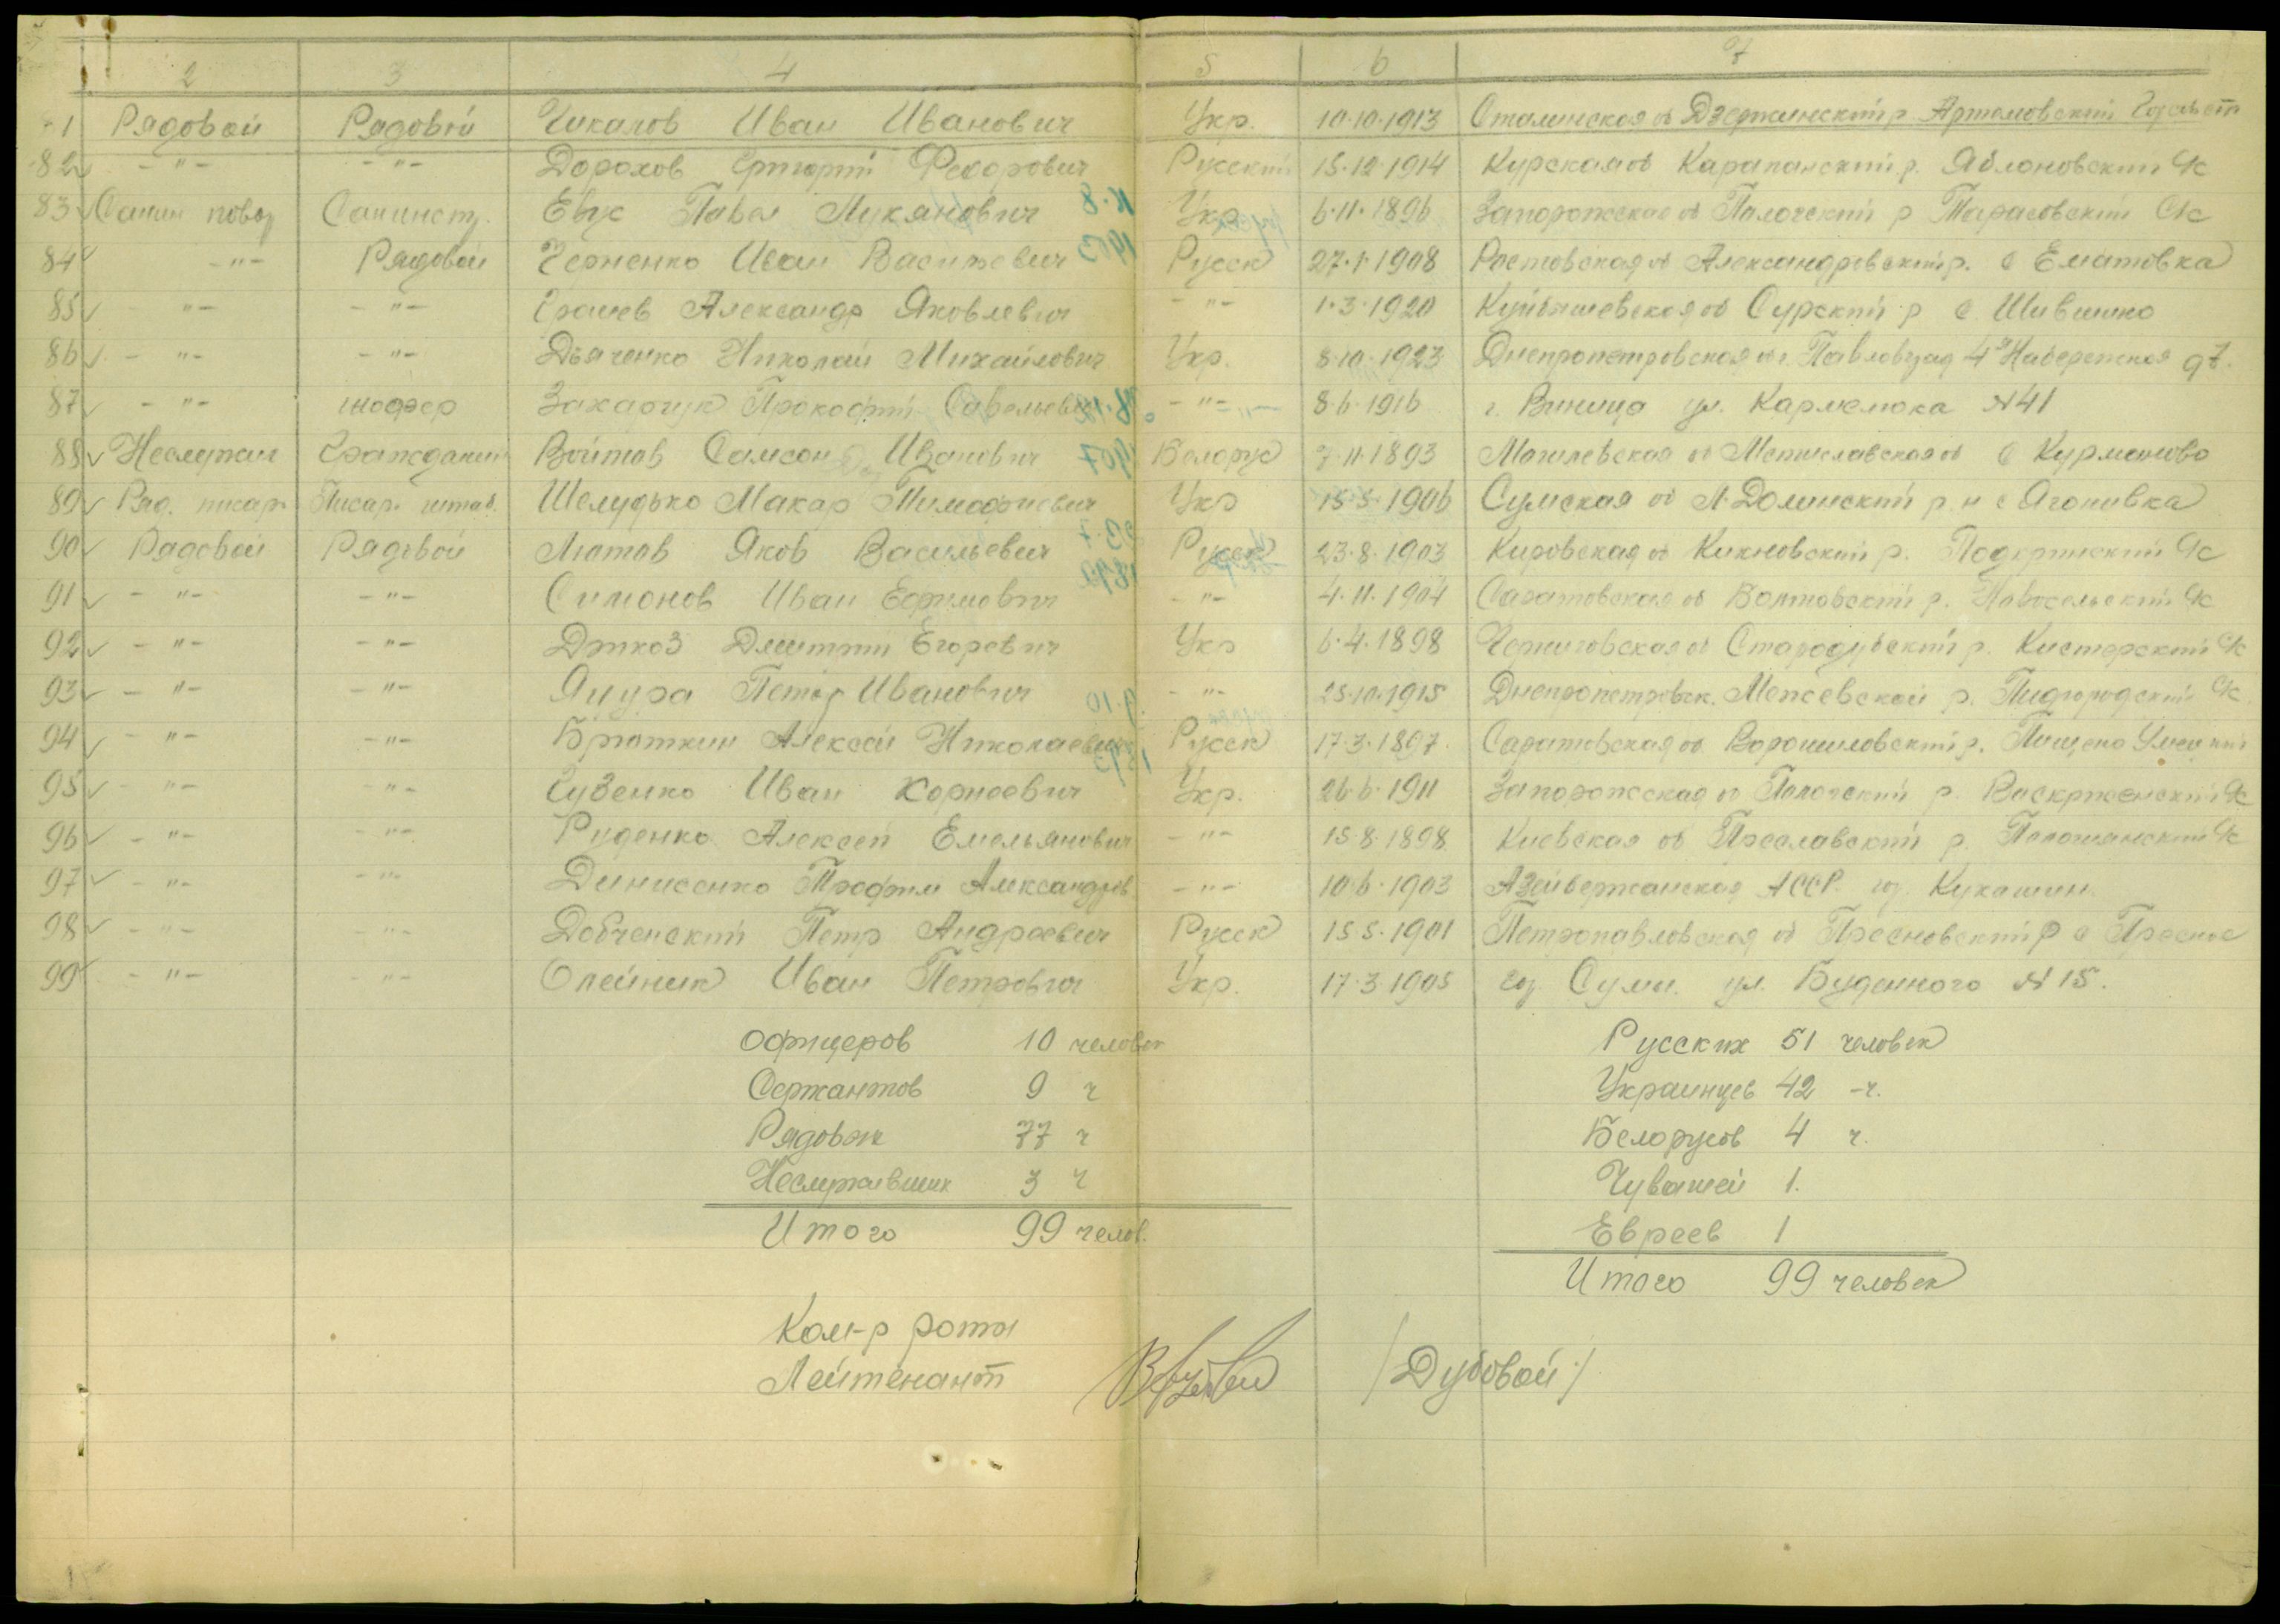 2 3 4 5 6 7
81 Рядовой Рядовой Чикалов Иван Иванович Укр. 10.10.1913 Сталинская об Дзержинский р Артемовский
82 -"- -"- Дорохов Григорий Федорович Русский 15.12.1914 Курская об Яблоновский с/с
83 Санин повар Санинстр. Евус Павел Лукянович Укр 6.11.1896 Запорожская об Пологский р Тарасовский с/с
84 -"- Рядовой Черненко Иван Васильевич Русск 27.1.1908 Ростовская об Александровский р. с
85 -"- -"- Грачев Александр Яковлевич -"- 1.3.1920 Куйбышевская об Сурский р с.
86 -"- -"- Дьяченко Николай Михайлович Укр. 8.10.1923 Днепропетровская об г. 4я Набережная
87 -"- шофер Захарчук Прокофий Савельевич -"- 8.6.1916 г. Виница ул. Кармелюка № 41
88 Неслужил Гражданин Войтов Самсон Иванович Белорус 11.1893 Могилевская об с Курманово
89 Ряд. писарь Писарь штаб. Шелудько Макар Тимофиевич Укр 15.5.1906 Сумская об Л-Долинский р-н с
90 Рядовой Рядовой Лютов Яков Васильевич Русск 23.8.1903 Кировская об Кикновский р. с/с
91 -"- -"- Симонов Иван Ефимович -"- 4.11.1904 Саратовская об р. Новосельский с/с
92 -"- -"- Дмитрий Егоревич Укр 6.4.1898 Черниговская об Стародубский р. Кистерский с/с
93 -"- -"- Янура Петор Иванович -"- 25.10.1915 Днепропетровск. Межевской р. Пидгородский с/с
94 -"- -"- Брюткин Алексей Николаевич Русск 17.3.1897. Саратовская об Ворошиловский р.
95 -"- -"- Гузенко Иван Корнеевич Укр. 26.6.1911 Запорожская об Пологский р. с/с
96 -"- -"- Руденко Алексей Емельянович -"- 15.8.1898 Киевская об р. с/с
97 -"- -"- Динисенко Трофим Александров -"- 10.6.1903 Азейбержанская АССР. гор.
98 -"- -"- Добченский Петр Андреевич Русск 15.5.1901 Петропавловская об Пресновский р с Пресное
99 -"- -"- Олейник Иван Петрович Укр. 17.3.1905 гор Сумы. ул. Буденного № 15.
Офицеров 10 человек
Сержантов 9 ч
Рядовых 77 ч
Неслуживших 3 ч
Итого 99 челов.
Русских 51 человек
Украинцев 42 -ч.
Белорусов 4 ч.
Чувашей 1.
Евреев 1
Итого 99 человек
Ком-р роты
Лейтенант /Дубовой/